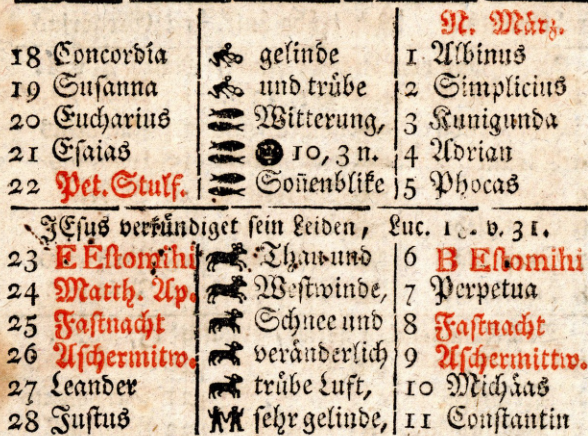 N. März.
18 Concordia gelinde 1 Albinus
19 Susanna und trübe 2 Simplicius
20 Eucharius Witterung, 3 Kunigunda
21 Esaias 10, 3 n. 4 Adrian
22 Pet. Stulf. Soñenblike 5 Phocas
JEsus verkündiget sein Leiden, Luc. v. 31.
23 E Estomihi Thau und 6 B Estomihi
24 Matth. Ap. Westwinde, 7 Perpetua
25 Fastnacht Schnee und 8 Fastnacht
26 Aschermitw. veränderlich 9 Aschermittw.
27 Leander trübe Luft, 10 Michäas
28 Justus sehr gelinde, 11 Constantin